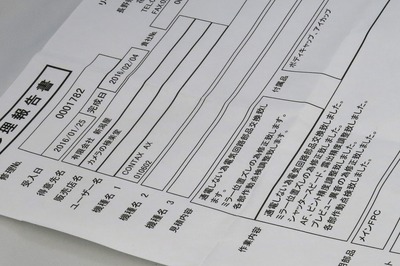 理報告書
修理No.
0001782
貴社No.
受入日
2016/01/25
完成日
2016/02/04
得意先名
有限会社 新潟屋
販売店名
カメラの極楽堂
ユーザー名
機種名 1
CONTAX AX
機種名 2
機種名 3
付属品
ボディキャップ、アイカップ
見積内容
通電しない為電気回路部品交換致します。
ミラー位置ズレの為修正致します。
各部作動点検調整致します。
作業内容
通電しない為電気回路部品交換致しました。
ミラー位置ズレの為修正致しました。
シャッタースピード・露出精度調整致しました。
AF、ピント精度調整致しました。
各部作動点検致しました。
メインFPC